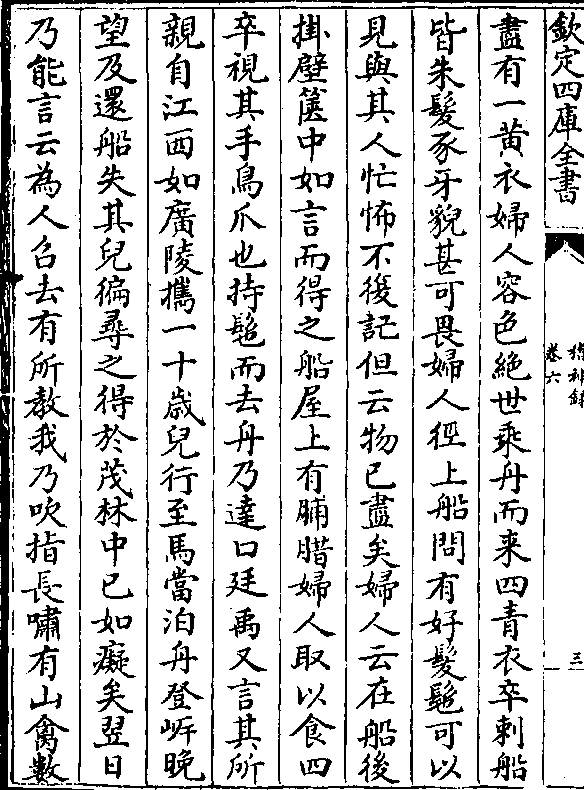 欽定四庫全書
稽神錄
卷六
三
盡有一黄衣婦人容色絶世乘舟而来四青衣卒刺船
皆朱髮豕牙貌甚可畏婦人徑上船問有好髮髢可以
見與其人忙怖不復記但云物已盡矣婦人云在船後
掛壁篋中如言而得之船屋上有脯腊婦人取以食四
卒視其手鳥爪也持髢而去舟乃達口廷禹又言其所
親自江西如廣陵攜一十歲兒行至馬當泊舟登㟁晚
望及還船失其兒徧尋之得於茂林中已如癡矣翌日
乃能言云為人召去有所教我乃吹指長嘯有山禽數